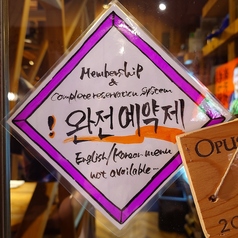 Membership
&
complete reservation system
! 완전예약제
English/Korean menu
not available~
OPUS
20